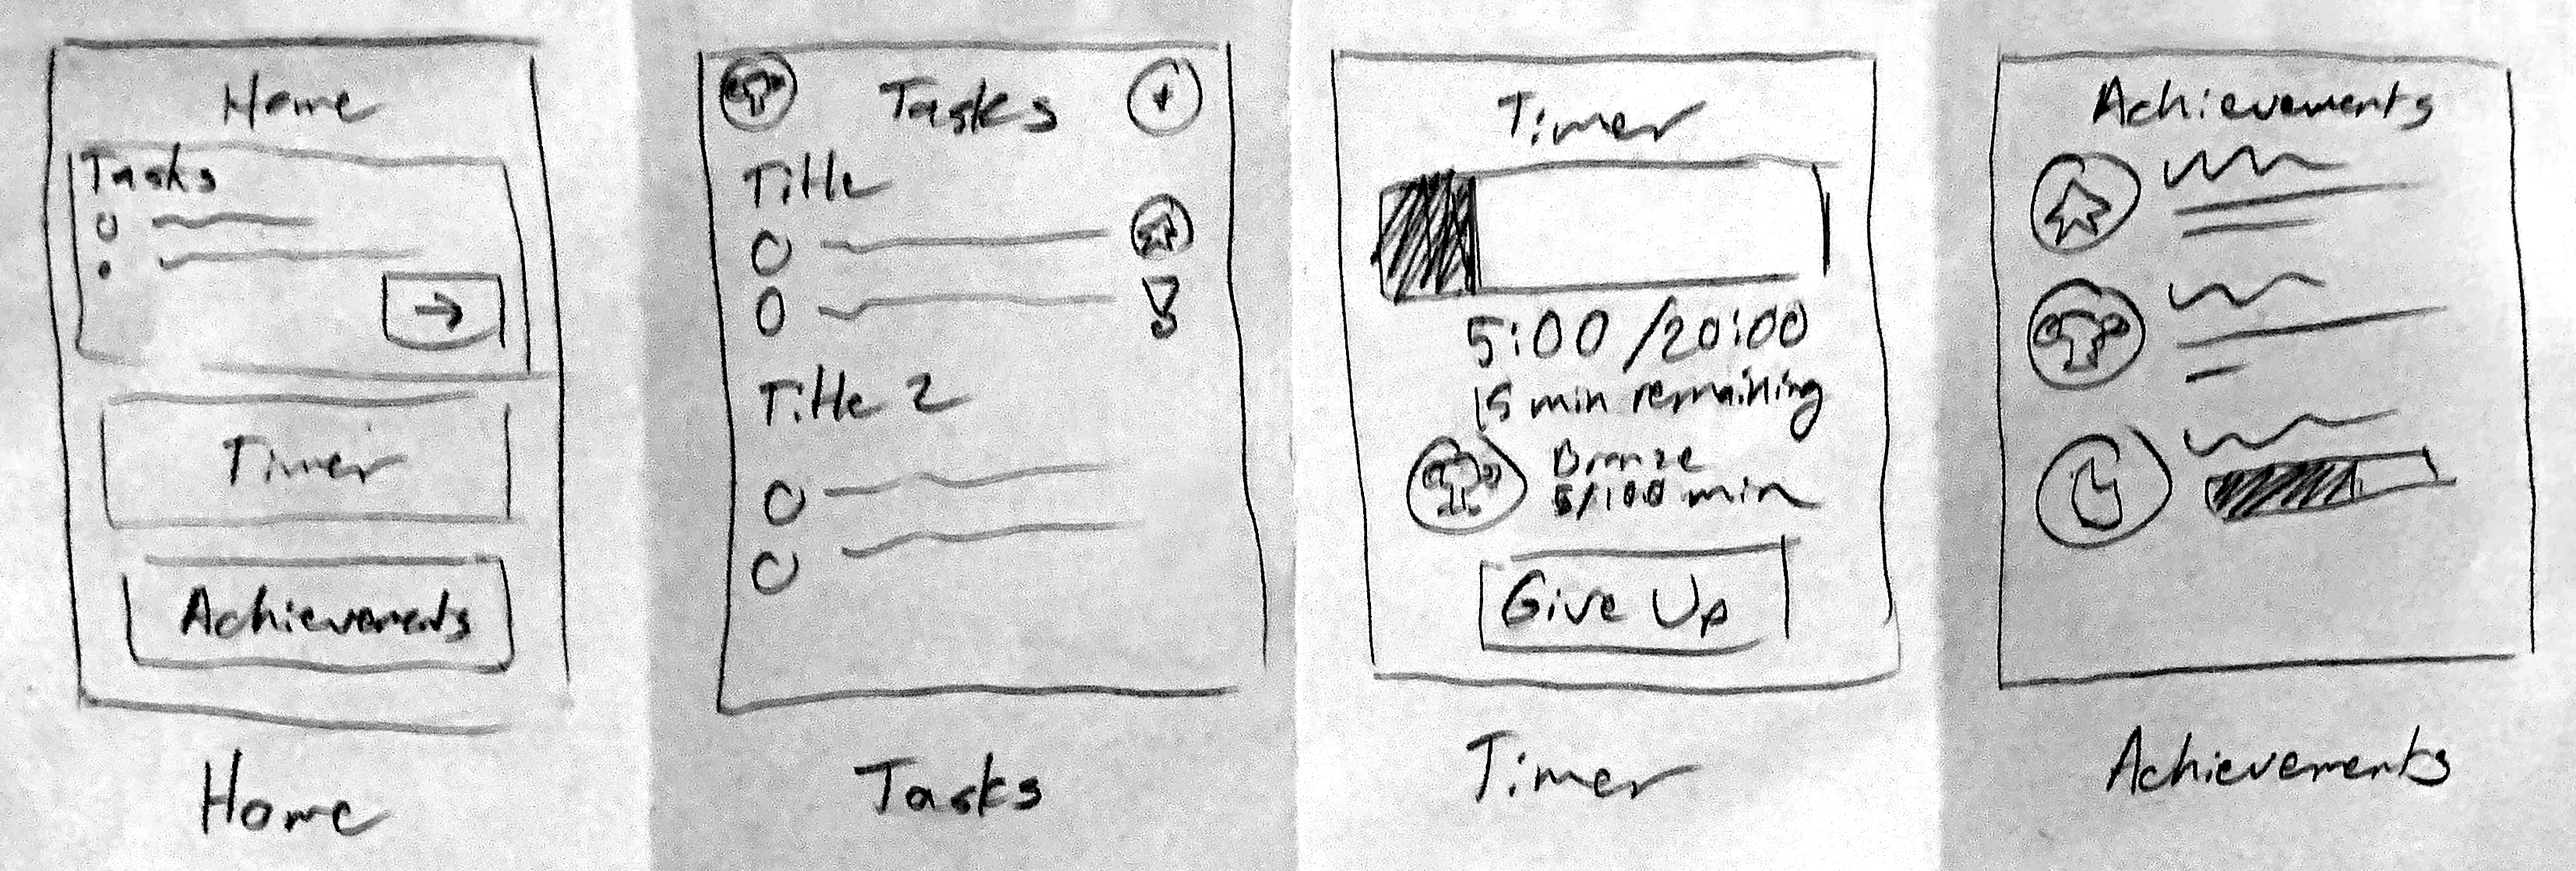 Home
Tasks
Timer
Achievements
Home
Tasks
Title
Title 2
Tasks
Timer
5:00 /20:00
15 min remaining
Bronze
5/100 min
Give Up
Timer
Achievements
Achievements